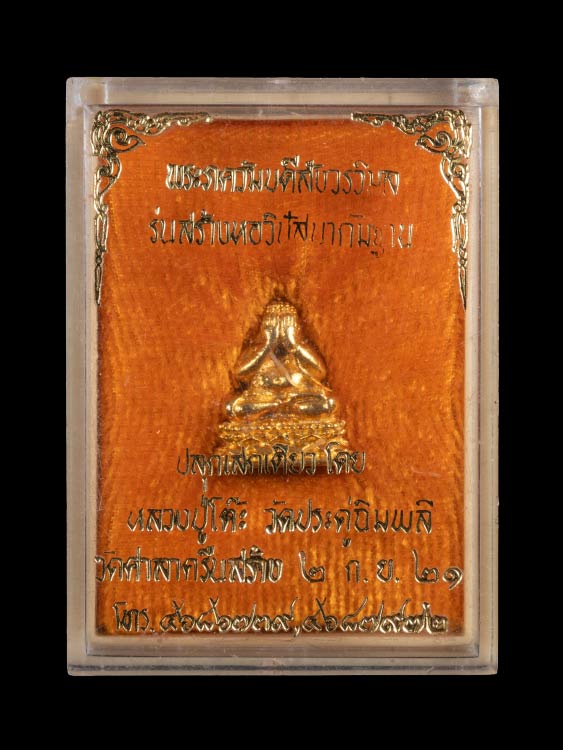 พระภควัมบดีสังวรวิมล
รุ่นสร้างหอวิปัสนากัมฐาน
ปลุกเสกเดียว โดย
หลวงปู่โต๊ะ วัดประดู่ฉิมพลี
วัดศาลาครืนสร้าง ๒ ก.ย. ๒๑
โทร.